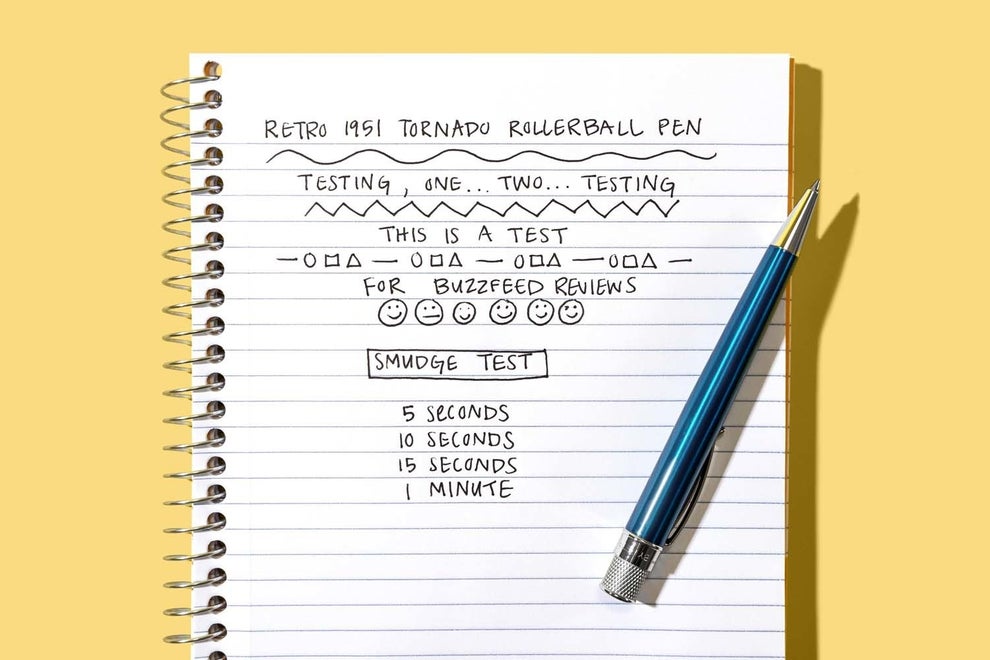 RETRO 1951 TORNADO ROLLERBALL PEN
TESTING, ONE... TWO... TESTING
THIS IS A TEST
FOR BUZZFEED REVIEWS
SMUDGE TEST
5 SECONDS
10 SECONDS
15 SECONDS
1 MINUTE